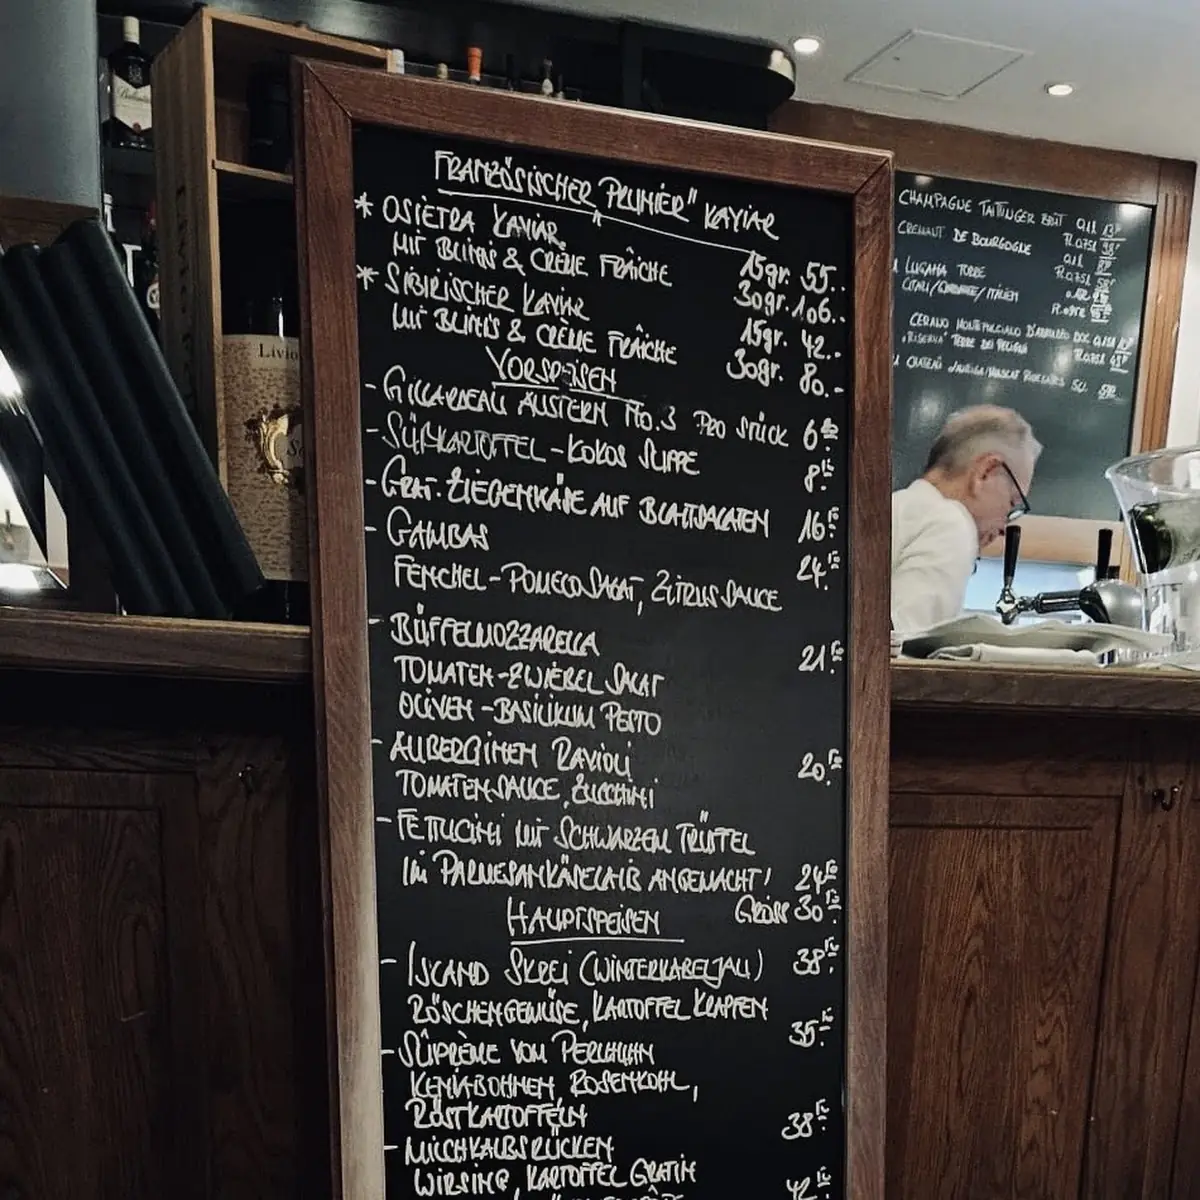 FRANZÖSISCHER "PRUNIER" KAVIAR
* OSIETRA KAVIAR 15gr. 55.-
MIT BLINIS & CRÈME FRAÎCHE 30gr. 106.-
* SIBIRISCHER KAVIAR 15gr. 42.-
MIT BLINIS & CRÈME FRAÎCHE 30gr. 80.-
VORSPEISEN
- GILLARDEAU AUSTERN No. 3 PRO STÜCK 6
- SÜẞKARTOFFEL-KOKOS SUPPE 8
- GRAT. ZIEGENKÄSE AUF BLATTSALATEN 16
- GAMBAS 24
FENCHEL-POMELO SALAT, ZITRUS SAUCE
- BÜFFELMOZZARELLA 21
TOMATEN-ZWIEBEL SALAT
OLIVEN-BASILIKUM PESTO
- AUBERGINEN RAVIOLI 20
TOMATENSAUCE, ZUCCHINI
- FETTUCINI MIT SCHWARZEM TRÜFFEL
IM PARMESANKÄSELAIB ANGEMACHT! 24
GROSS 30
HAUPTSPEISEN
- ISLAND SKREI (WINTERKABELJAU) 38
RÖSCHENGEMÜSE, KARTOFFEL KRAPFEN
- SUPRÊME VOM PERLHUHN 35
KENIABOHNEN, ROSENKOHL,
RÖSTKARTOFFELN
- MILCHKALBSRÜCKEN 38
WIRSING, KARTOFFEL GRATIN
42
CHAMPAGNE TAITTINGER BRUT 0,1l
Fl. 0,75l
CREMANT DE BOURGOGNE 0,1l
Fl. 0,75l
LUGANA TORRE
ITALIEN
CERANO MONTEPULCIANO D'ABRUZZO DOC
"RISERVA" TERRE DEI
CHATEAU
Livio